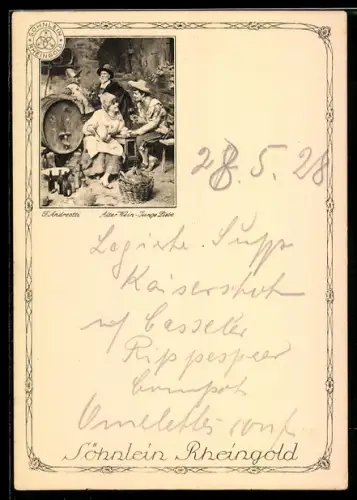 SÖHNLEIN RHEINGOLD
F. Andreotti Alter Wein - Junge Liebe
28.5.28
Legierte Supp
Kaiserskoh
Casseler
Rippespeer
Compot
Omelettes conf.
Söhnlein Rheingold